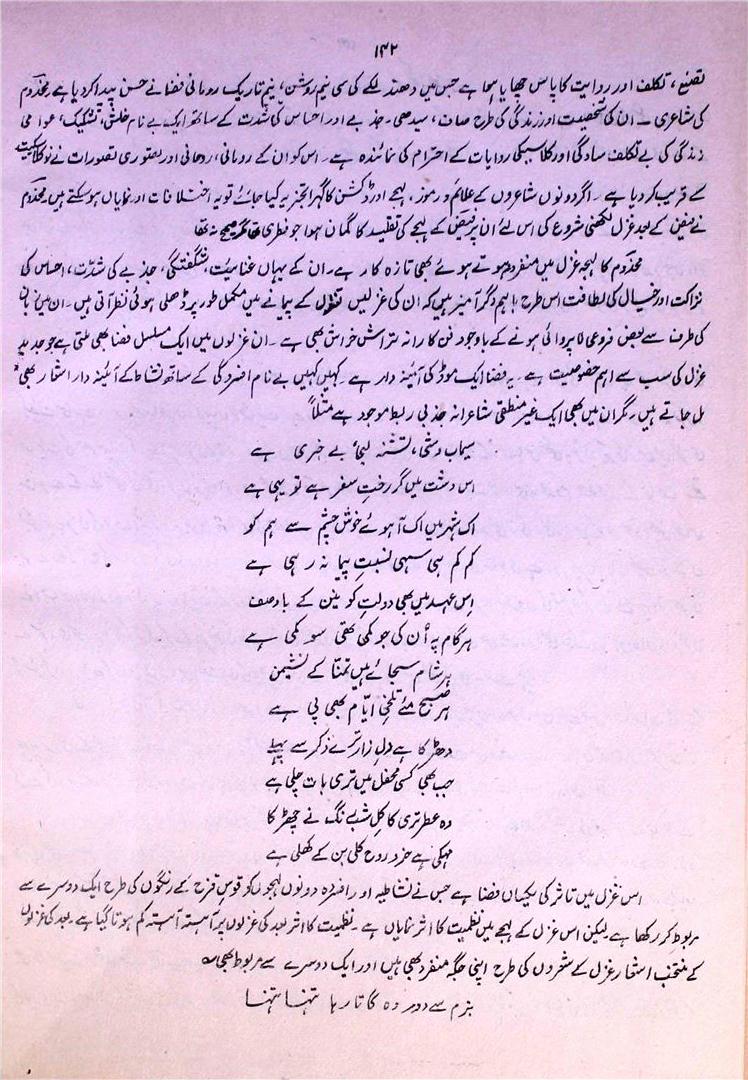 ۱۴۲
تصنع، تکلف اور روایت کا پاس چھایا سجا ہے جس میں دھندلکے کی سی نیم روشن، نیم تاریک رومانی فضا نے حسن پیدا کر دیا ہے مخدوم
کی شاعری ــ ان کی شخصیت اور زندگی کی طرح صاف، سیدھی۔ جذبے اور احساس کی شدت کے ساتھ ایک بے نام خلش، تشکیک، عوامی
زندگی کی بے تکلف سادگی اور کلاسیکی روایات کے احترام کی نمائندہ ہے۔ اس کو ان کے رومانی، رجائی اور تصوری تصورات نے نوکلاسکیت
کے قریب کر دیا ہے۔ اگر دونوں شاعروں کے علائم و رموز، لہجے اور ڈکشن کا گہرا تجزیہ کیا جائے تو یہ اختلافات اور نمایاں ہو سکتے ہیں۔ مخدوم
نے فیض کے بعد غزل لکھنی شروع کی اس لئے ان پر فیض کے لہجے کی تقلید کا گمان ہوا جو فطری تھا مگر صحیح نہ تھا
مخدوم کا لہجہ غزل میں منفرد ہوتے ہوئے بھی تازہ کار ہے۔ ان کے یہاں غنائیت، شگفتگی، جذبے کی شدّت، احساس کی
نزاکت اور خیال کی لطافت اس طرح باہم دگر آمیز ہیں کہ ان کی غزلیں تغزل کے پیمانے میں مکمل طور پر ڈھلی ہوئی نظر آتی ہیں۔ ان میں زبان
کی طرف سے بعض فروعی لاپروائی ہونے کے باوجود فن کارانہ تراش خراش بھی ہے۔ ان غزلوں میں ایک مسلسل فضا بھی ملتی ہے جو جدید
غزل کی سب سے اہم خصوصیت ہے۔ یہ فضا ایک موڈ کی آئینہ دار ہے۔ کہیں کہیں بے نام افسردگی کے ساتھ نشاط کے آئینہ دار اشعار بھی
مل جاتے ہیں۔ مگر ان میں بھی ایک غیر منطقی شاعرانہ جذبی ربط موجود ہے مثلاً
سیماب وشی، تشنہ لبی، بے خبری ہے
اس دشت میں گر رختِ سفر ہے تو یہی ہے
اک شہر میں اک آہوئے خوش چشم سے ہم کو
کم کم ہی سہی نسبتِ پیمانہ رہی ہے
اِس عہد میں بھی دولتِ کونین کے باوصف
ہر گام پہ اُن کی جو کمی تھی سو کمی ہے
ہر شام سجائے ہیں تمنّا کے نشیمن
ہر صبح مئے تلخیِ ایّام بھی پی ہے
دھڑکا ہے دلِ زار ترے ذکر سے پہلے
جب بھی کسی محفل میں تری بات چلی ہے
وہ عطر تری کاکلِ شب رنگ نے چھڑکا
مہکی ہے خرد روح کلی بن کے کھلی ہے
اس غزل میں تاثر کی یکساں فضا ہے جس نے نشاطیہ اور افسردہ دونوں لہجوں کو قوسِ قزح کے رنگوں کی طرح ایک دوسرے سے
مربوط کر رکھا ہے لیکن اس غزل کے لہجے میں نظمیت کا اثر نمایاں ہے۔ نظمیت کا اثر بعد کی غزلوں پر آہستہ آہستہ کم ہوتا گیا ہے۔ بعد کی غزلوں
کے منتخب اشعار غزل کے شعروں کی طرح اپنی جگہ منفرد بھی ہیں اور ایک دوسرے سے مربوط بھی
بزم سے دور وہ گاتا رہا تنہا تنہا